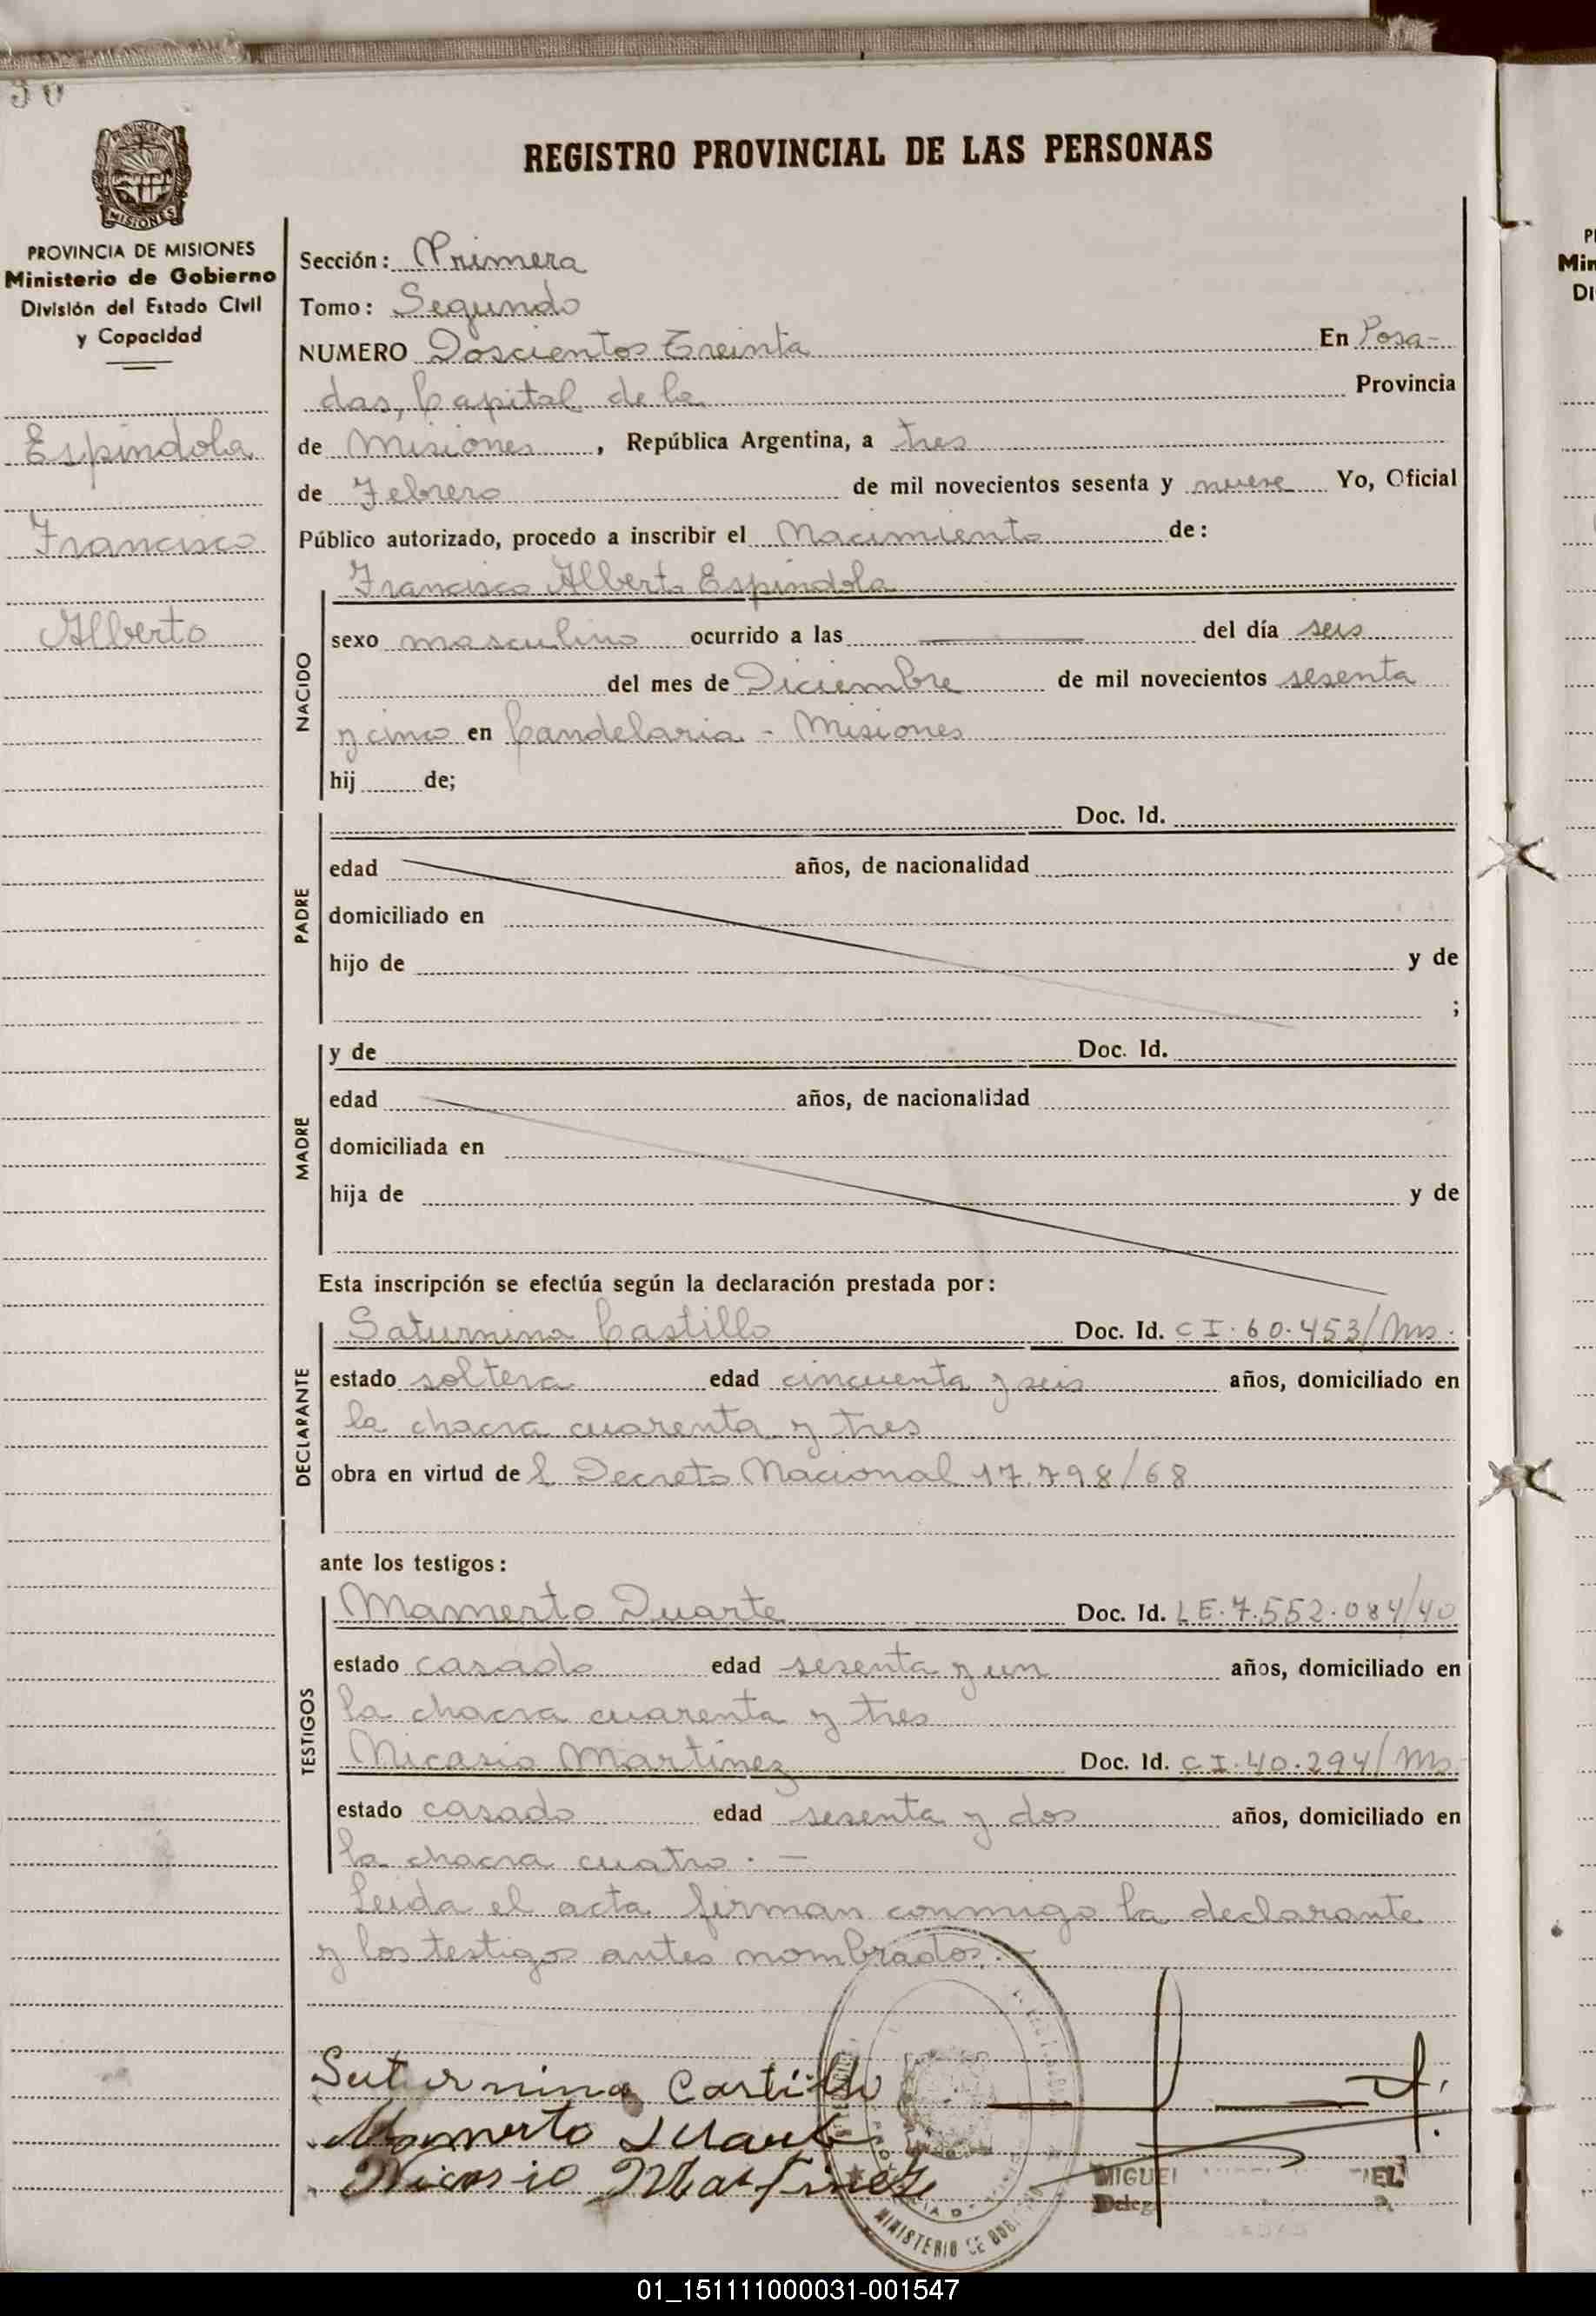 30
REGISTRO PROVINCIAL DE LAS PERSONAS
MISIONES
PROVINCIA DE MISIONES
Ministerio de Gobierno
División del Estado Civil
y Capacidad
Espíndola
Francisco
Alberto
Sección: Primera
Tomo: Segundo
NUMERO Doscientos Treinta En Posa-
das, Capital de la Provincia
de Misiones, República Argentina, a tres
de Febrero de mil novecientos sesenta y nueve Yo, Oficial
Público autorizado, procedo a inscribir el Nacimiento de:
NACIDO
Francisco Alberto Espíndola
sexo masculino ocurrido a las del día seis
del mes de Diciembre de mil novecientos sesenta
y cinco en Candelaria - Misiones
hij de;
PADRE
Doc. Id.
edad años, de nacionalidad
domiciliado en
hijo de y de
;
MADRE
y de Doc. Id.
edad años, de nacionalidad
domiciliada en
hija de y de
Esta inscripción se efectúa según la declaración prestada por:
DECLARANTE
Saturnina Castillo Doc. Id. C I. 60.453/Mns.
estado soltera edad cincuenta y seis años, domiciliado en
la chacra cuarenta y tres
obra en virtud de l Decreto Nacional 17.798/68
ante los testigos:
TESTIGOS
Mamerto Duarte Doc. Id. L E. 7.552.084/40
estado casado edad sesenta y un años, domiciliado en
la chacra cuarenta y tres
Nicasio Martínez Doc. Id. C.I. 40.294/Mns.
estado casado edad sesenta y dos años, domiciliado en
la chacra cuatro. —
Leida el acta firman conmigo la declarante
y los testigos antes nombrados. —
Saturnina Castillo
Mamerto Duarte
Nicasio Martinez
MINISTERIO DE GOBI
MIGUEL
Deleg
01_151111000031-001547